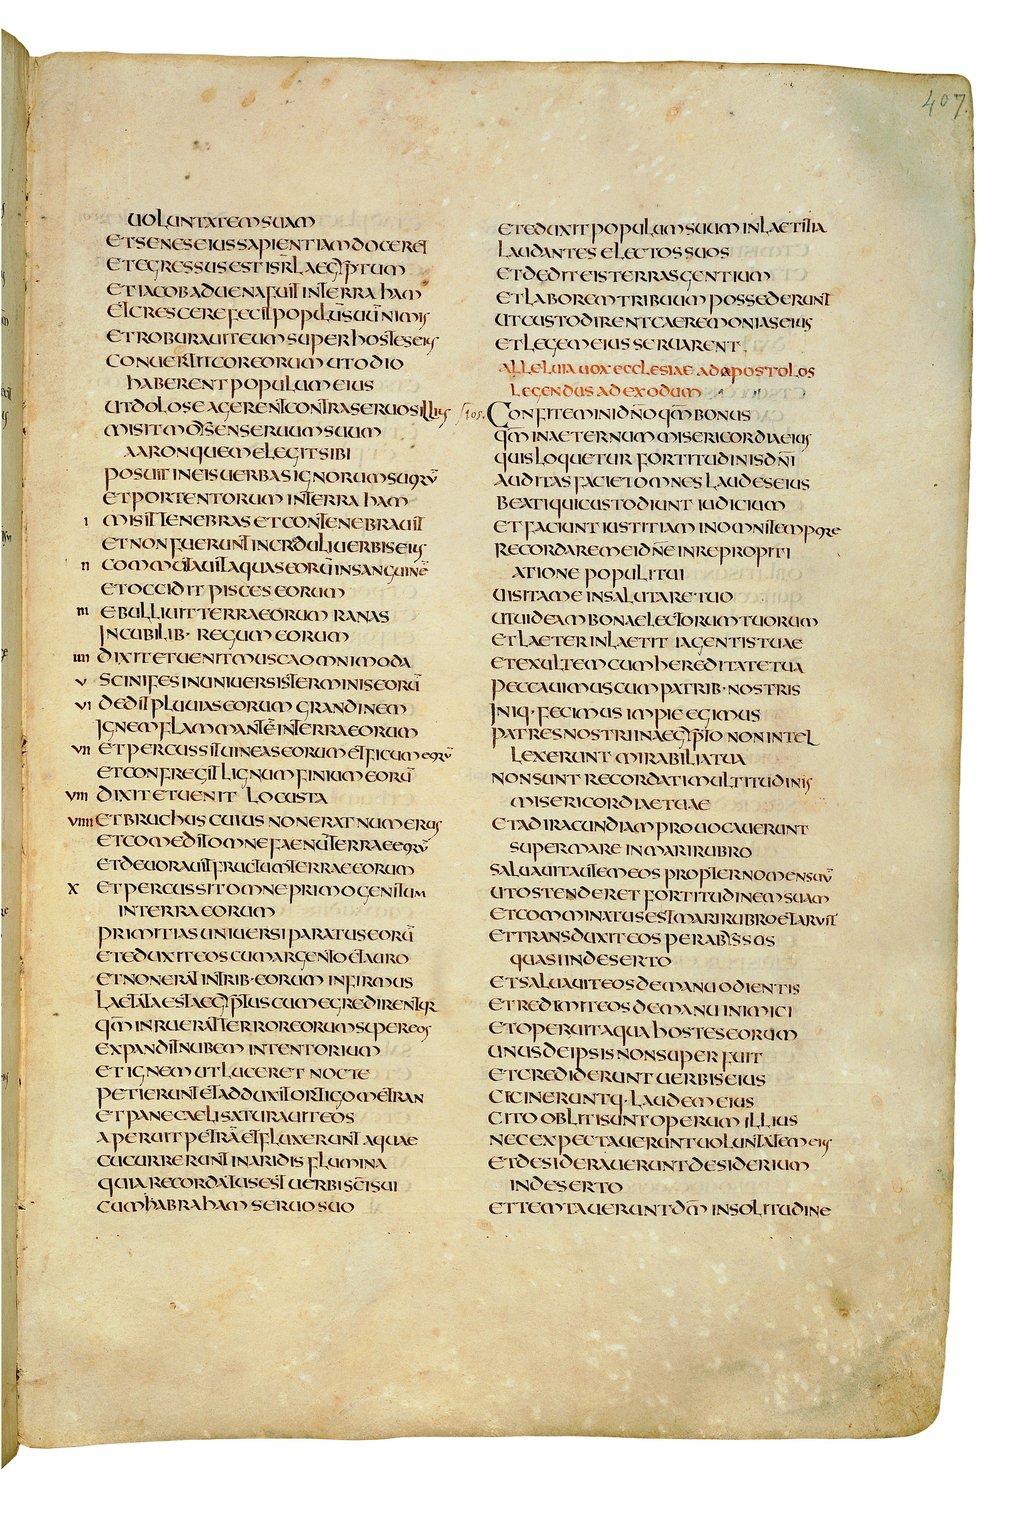 407.
UOLUNTATEMSUAM
ETSENESEIUSSAPIENTIAMDOCERET
ETEGRESSUSESTISRL̄AEGYPTUM
ETIACOBADUENAFUITINTERRAHAM
ETCRESCEREFECITPOPULŪSUŪNIMIS
ETROBURAUITEUMSUPERHOSTESEIUS
CONUERTITCOREORUMUTODIO
HABERENTPOPULUMEIUS
UTDOLOSEAGERENTCONTRASERUOSILLIUS
MISITMOSENSERUUMSUUM
AARONQUEMELEGITSIBI
POSUITINEISUERBASIGNORUMSUORŪ
ETPORTENTORUMINTERRAHAM
I MISITTENEBRASETCONTENEBRAUIT
ETNONFUERUNTINCREDULIUERBISEIUS
II COMMUTAUITAQUASEORŪINSANGUINĒ
ETOCCIDITPISCESEORUM
III EBULLIUITTERRAEORUMRANAS
INCUBILIB·REGUMEORUM
IIII DIXITETUENITMUSCAOMNIMODA
V SCINIFESINUNIUERSISTERMINISEORŪ
VI DEDITPLUUIASEORUMGRANDINEM
IGNEMFLAMMANTĒINTERRAEORUM
VII ETPERCUSSITUINEASEORUMETFICUMEORŪ
ETCONFREGITLIGNUMFINIUMEORŪ
VIII DIXITETUENITLOCUSTA
VIIII ETBRUCHUSCUIUSNONERATNUMERUS
ETCOMEDITOMNEFAENŪTERRAEEORŪ
ETDEUORAUITFRUCTUMTERRAEEORUM
X ETPERCUSSITOMNEPRIMOGENITUM
INTERRAEORUM
PRIMITIASUNIUERSIPARATUSEORŪ
ETEDUXITEOSCUMARGENTOETAURO
ETNONERATINTRIB·EORUMINFIRMUS
LAETATAESTAEGYPTUSCUMEGREDIRENTUR
QM̄INRUERATTERROREORUMSUPEREOS
EXPANDITNUBEMINTENTORIUM
ETIGNEMUTLUCERETNOCTE
PETIERUNTETADDUXITORTIGOMETRAN
ETPANECAELISATURAUITEOS
APERUITPETRĀETFLUXERUNTAQUAE
CUCURRERUNTINARIDISFLUMINA
QUIARECORDATUSESTUERBISC̄ISUI
CUMHABRAHAMSERUOSUO
ETEDUXITPOPULUMSUUMINLAETITIA
LAUDANTESELECTOSSUOS
ETDEDITEISTERRASGENTIUM
ETLABOREMTRIBUUMPOSSEDERUNT
UTCUSTODIRENTCAEREMONIASEIUS
ETLEGEMEIUSSERUARENT
ALLELUIAUOXECCLESIAEADAPOSTOLOS
LEGENDUSADEXODUM
105. CONFITEMINIDN̄OQM̄BONUS
QM̄INAETERNUMMISERICORDIAEIUS
QUISLOQUETURFORTITUDINISDN̄I
AUDITASFACIETOMNESLAUDESEIUS
BEATIQUICUSTODIUNTIUDICIUM
ETFACIUNTIUSTITIAMINOMNITEMPORE
RECORDAREMEIDN̄EINREPROPITI
ATIONEPOPULITUI
UISITAMEINSALUTARETUO
UTUIDEAMBONAELECTORUMTUORUM
ETLAETERINLAETITIAGENTISTUAE
ETEXULTEMCUMHEREDITATETUA
PECCAUIMUSCUMPATRIB·NOSTRIS
INIQ·FECIMUSIMPIEEGIMUS
PATRESNOSTRIINAEGYPTONONINTEL
LEXERUNTMIRABILIATUA
NONSUNTRECORDATIMULTITUDINIS
MISERICORDIAETUAE
ETADIRACUNDIAMPROUOCAUERUNT
SUPERMAREINMARIRUBRO
SALUAUITAUTEMEOSPROPTERNOMENSUŪ
UTOSTENDERETFORTITUDINEMSUAM
ETCOMMINATUSESTMARIRUBROETARUIT
ETTRANSDUXITEOSPERABYSSOS
QUASIINDESERTO
ETSALUAUITEOSDEMANUODIENTIS
ETREDIMITEOSDEMANUINIMICI
ETOPERUITAQUAHOSTESEORUM
UNUSDEIPSISNONSUPERFUIT
ETCREDIDERUNTUERBISEIUS
CICINERUNTQ·LAUDEMEIUS
CITOOBLITISUNTOPERUMILLIUS
NECEXPECTAUERUNTUOLUNTATEMEIUS
ETDESIDERAUERUNTDESIDERIUM
INDESERTO
ETTEMTAUERUNTDM̄INSOLITUDINE